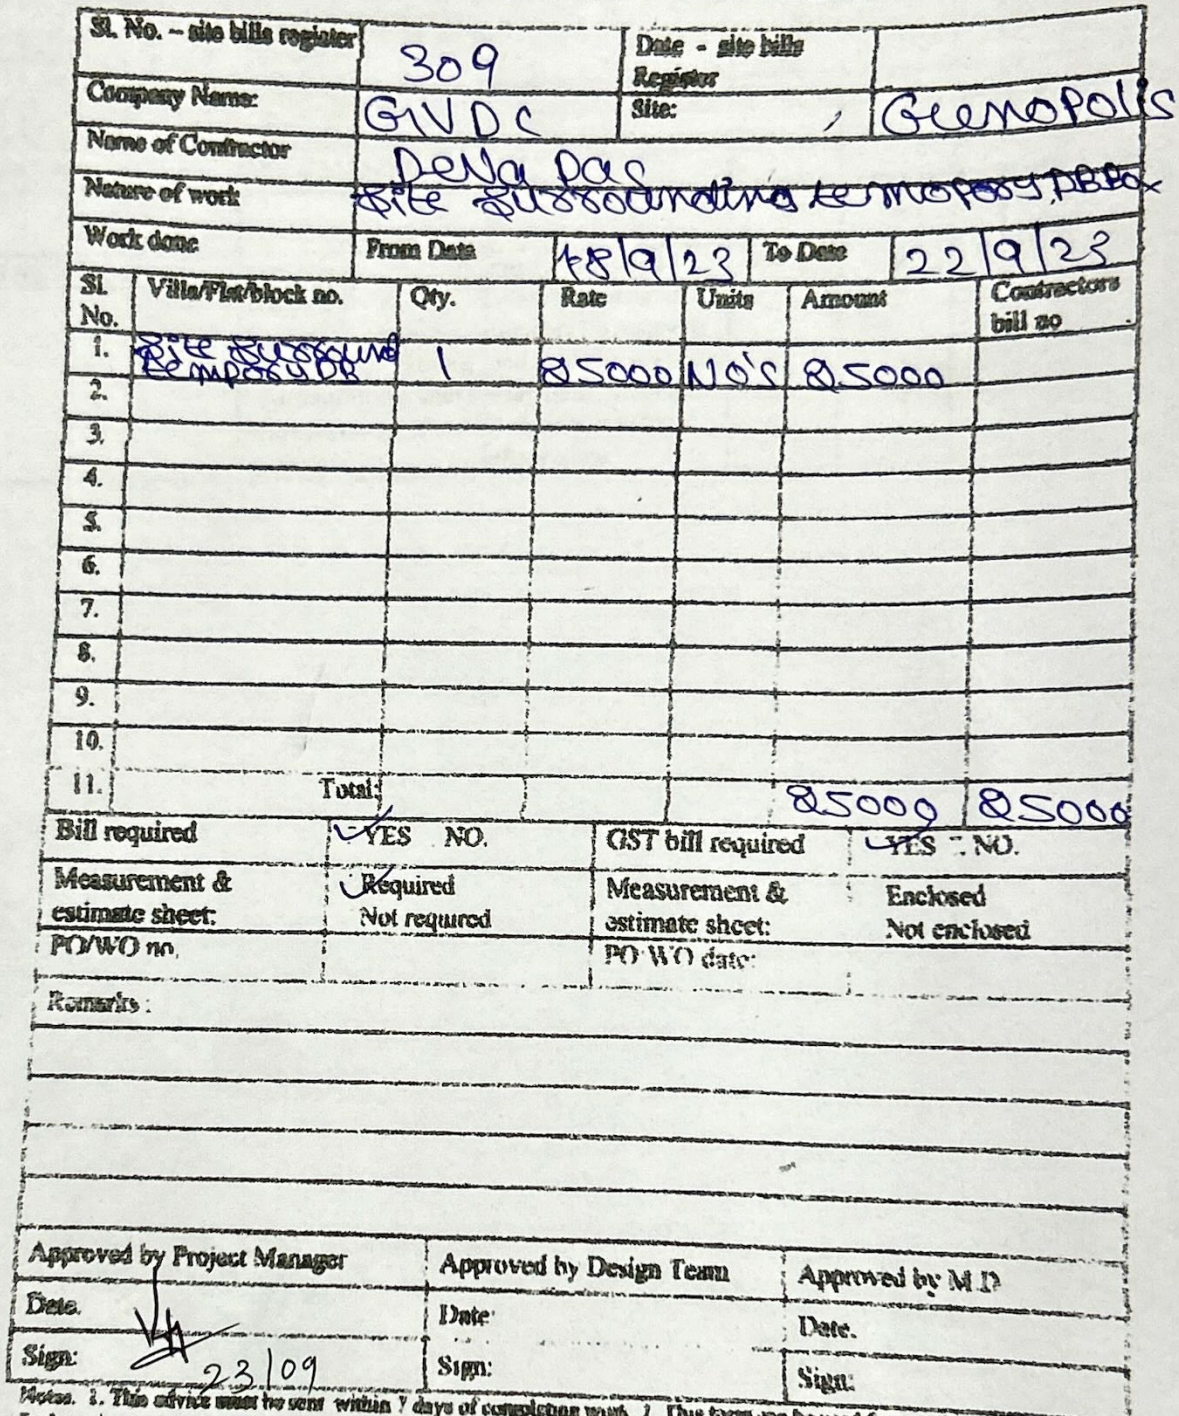 Sl. No. – site bills register 309 Date - site bills Register
Company Name: GVDC Site: Genopolis
Name of Contractor Deva Das
Nature of work Site Surrounding temopory DB Box
Work done From Date 18/9/23 To Date 22/9/23
Sl. No. Villa/Flat/block no. Qty. Rate Units Amount Contractors bill no
1. Site Surround tempory DB 1 25000 NO'S 25000
2.
3.
4.
5.
6.
7.
8.
9.
10.
11. Total: 25000 25000
Bill required YES NO. GST bill required YES - NO.
Measurement & estimate sheet: Required Not required Measurement & estimate sheet: Enclosed Not enclosed
PO/WO no. PO WO date:
Remarks :
Approved by Project Manager Approved by Design Team Approved by M.D
Date. Date: Date.
Sign: 23/09 Sign: Sign:
Notes. 1. This advice must be sent within 7 days of completion work. 2. This form